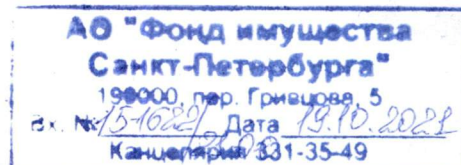 АО "Фонд имущества
Санкт-Петербурга"
190000, пер. Гривцова, 5
Вх. № 15-1622/ Дата 19.10.2021
Канцелярия 331-35-49